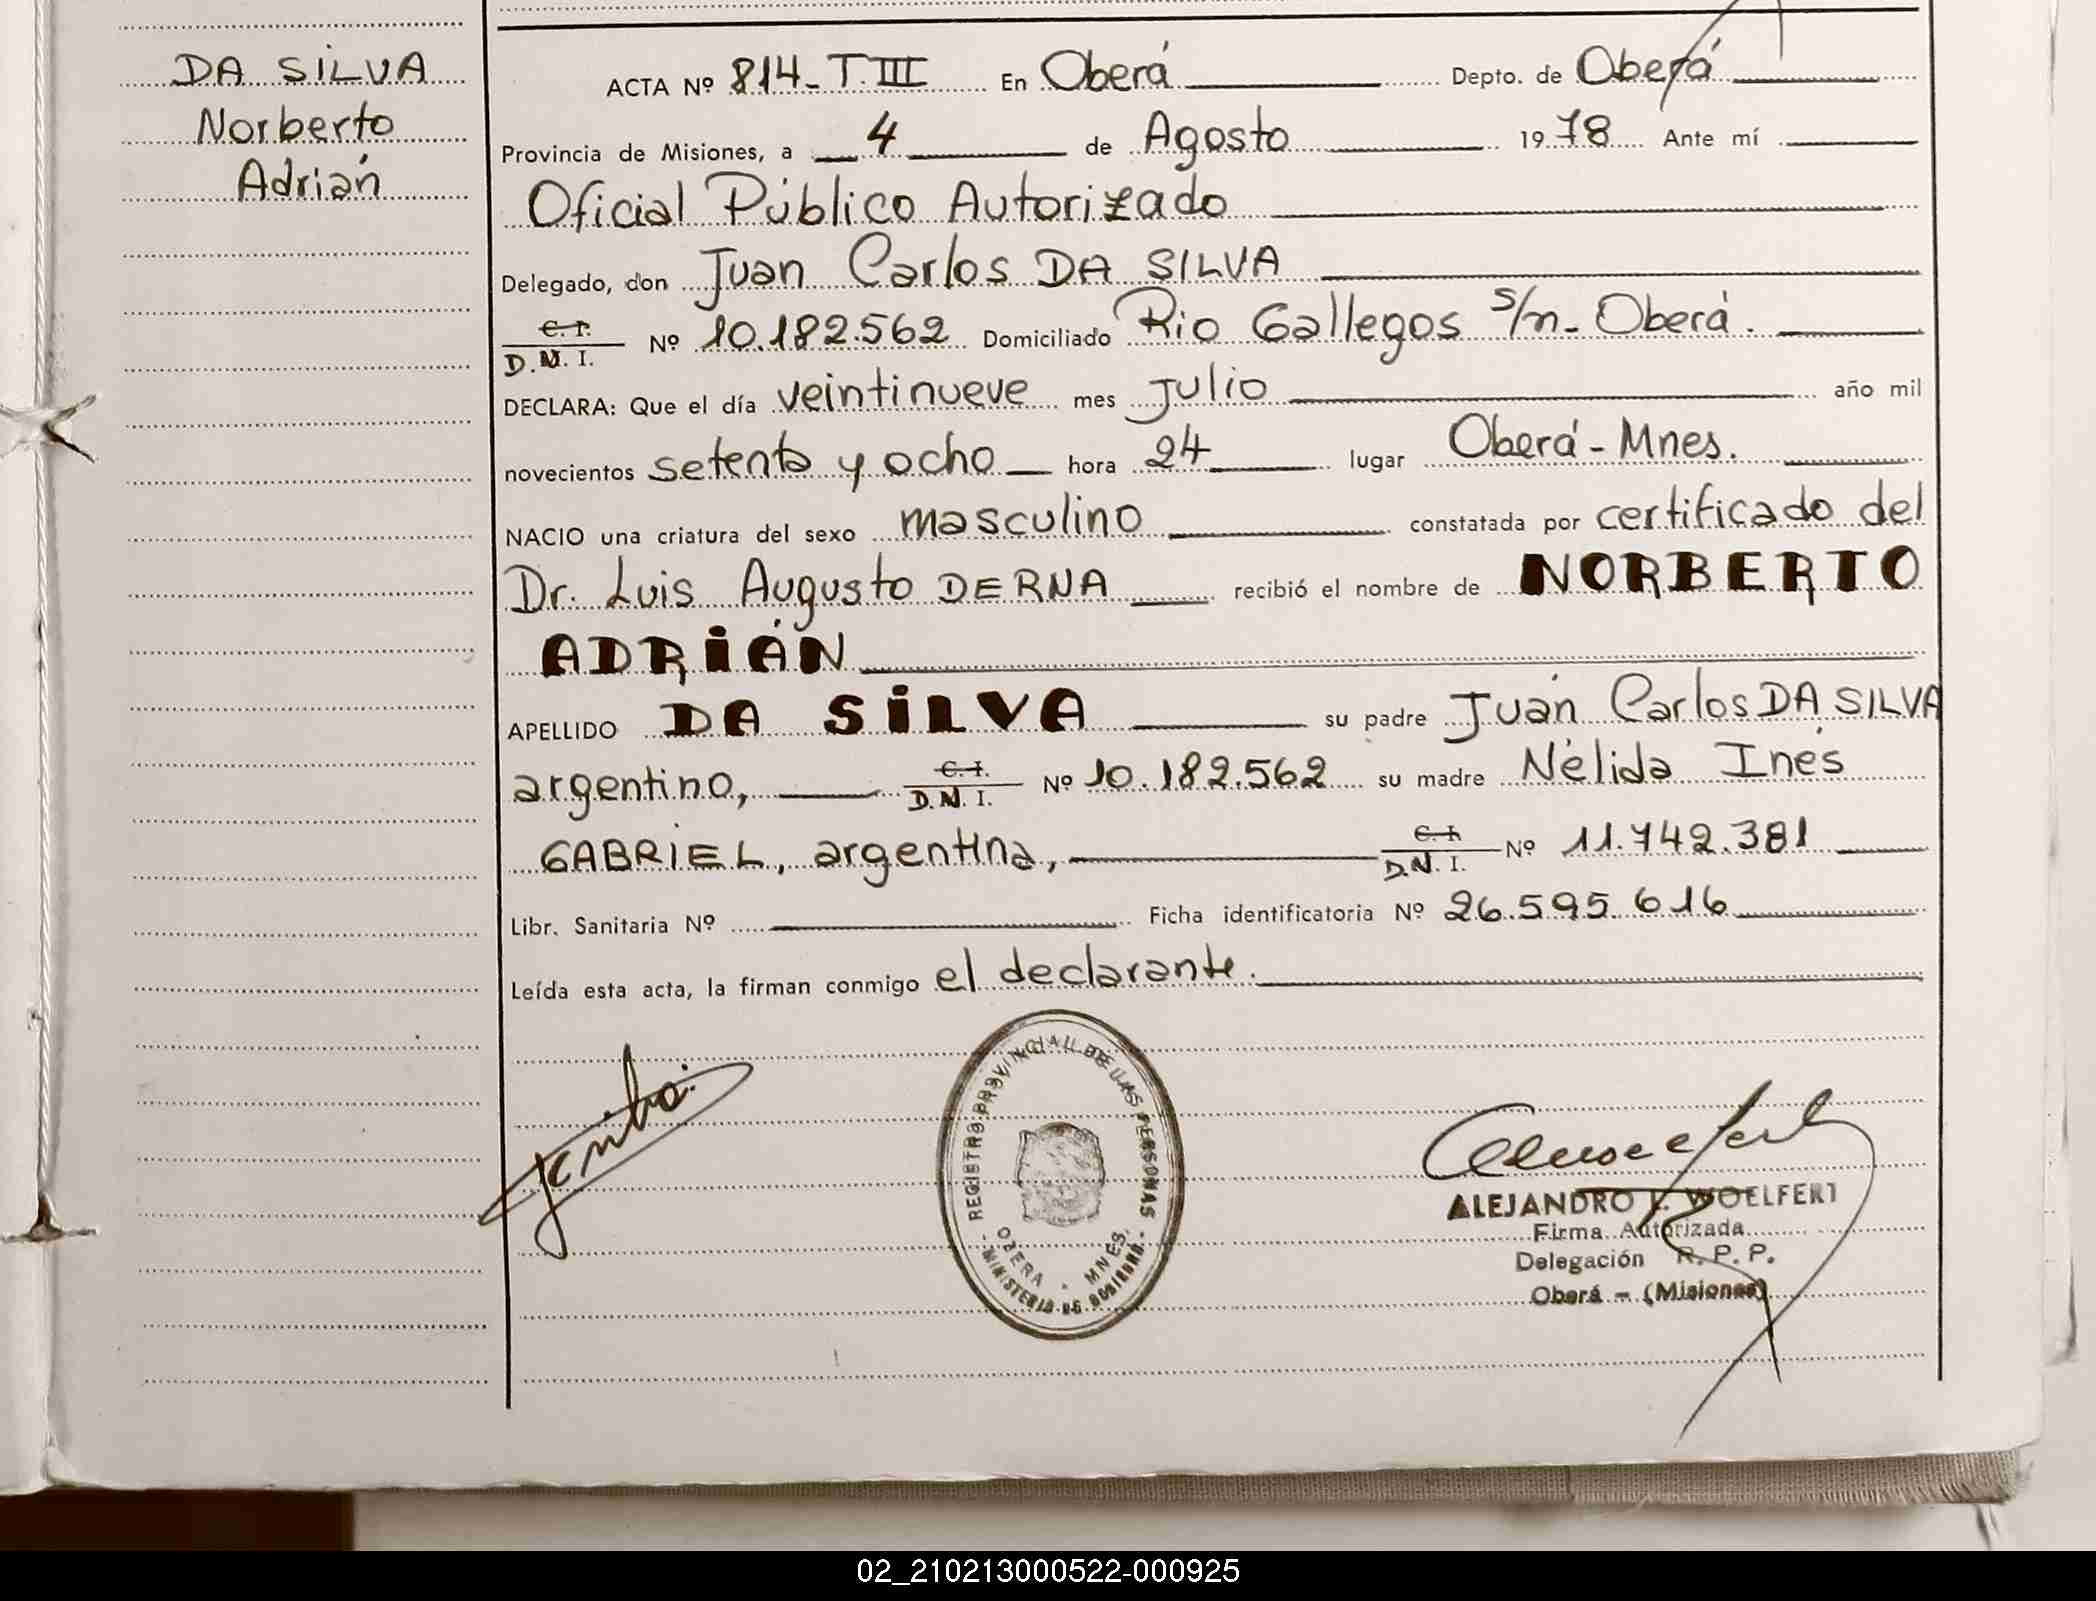 DA SILVA
Norberto
Adrián
ACTA Nº 814-T.III En Oberá Depto. de Oberá
Provincia de Misiones, a 4 de Agosto 1978 Ante mí
Oficial Público Autorizado
Delegado, don Juan Carlos DA SILVA
C. I.
D. N. I. Nº 10.182.562 Domiciliado Río Gallegos s/n- Oberá.
DECLARA: Que el día veintinueve mes Julio año mil
novecientos setenta y ocho hora 24 lugar Oberá-Mnes.
NACIO una criatura del sexo masculino constatada por certificado del
Dr. Luis Augusto DERNA recibió el nombre de NORBERTO
ADRIÁN
APELLIDO DA SILVA su padre Juán Carlos DA SILVA
argentino, C. I. D. N. I. Nº 10.182.562 su madre Nélida Inés
GABRIEL, argentina, C. I. D. N. I. Nº 11.742.381
Libr. Sanitaria Nº Ficha identificatoria Nº 26.595.616
Leída esta acta, la firman conmigo el declarante.
REGISTRO PROVINCIAL DE LAS PERSONAS
OBERA - MNES.
- MINISTERIO DE GOBIERNO -
ALEJANDRO WOELFERT
Firma Autorizada
Delegación R. P. P.
Oberá - (Misiones)
02_210213000522-000925